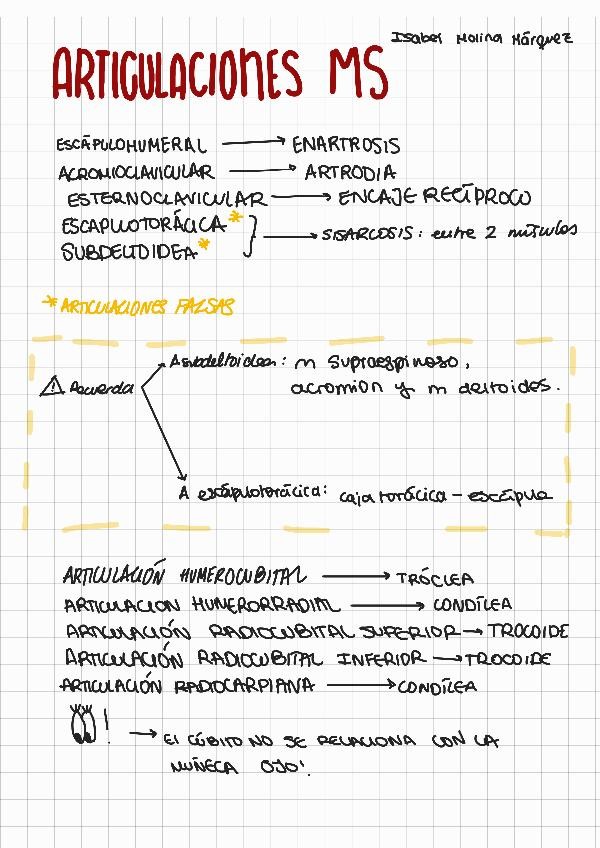 Isabel Molina Márquez
ARTICULACIONES MS
ESCÁPULOHUMERAL → ENARTROSIS
ACROMIOCLAVICULAR → ARTRODIA
ESTERNOCLAVICULAR → ENCAJE RECÍPROCO
ESCAPULOTORÁCICA*
SUBDELTOIDEA* } → SISARCOSIS: entre 2 músculos
* ARTICULACIONES FALSAS
⚠ Recuerda
A subdeltoidea: m supraespinoso,
acromion y m deltoides.
A escápulotorácica: caja torácica - escápula
ARTICULACIÓN HUMEROCUBITAL → TRÓCLEA
ARTICULACION HUMERORRADIAL → CONDÍLEA
ARTICULACIÓN RADIOCUBITAL SUPERIOR → TROCOIDE
ARTICULACIÓN RADIOCUBITAL INFERIOR → TROCOIDE
ARTICULACIÓN RADIOCARPIANA → CONDÍLEA
! → El CÚBITO NO SE RELACIONA CON LA
MUÑECA OJO!